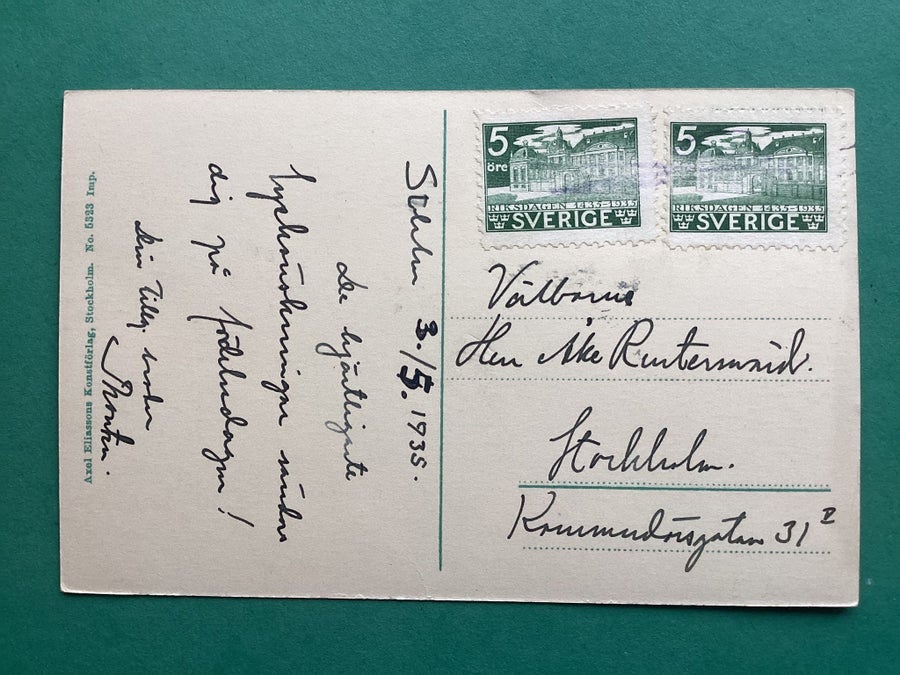 Axel Eliassons Konstförlag, Stockholm. No. 5323 Imp.
Sthlm 3./5. 1935.
De hjärtligaste
lyckönskningar sändas
dig på födelsedagen!
Din tillg.
5
öre
RIKSDAGEN 1435-1935
SVERIGE
5
RIKSDAGEN 1435-1935
SVERIGE
Välborne
Herr Åke Rutersward.
Stockholm.
Kommendörsgatan 31